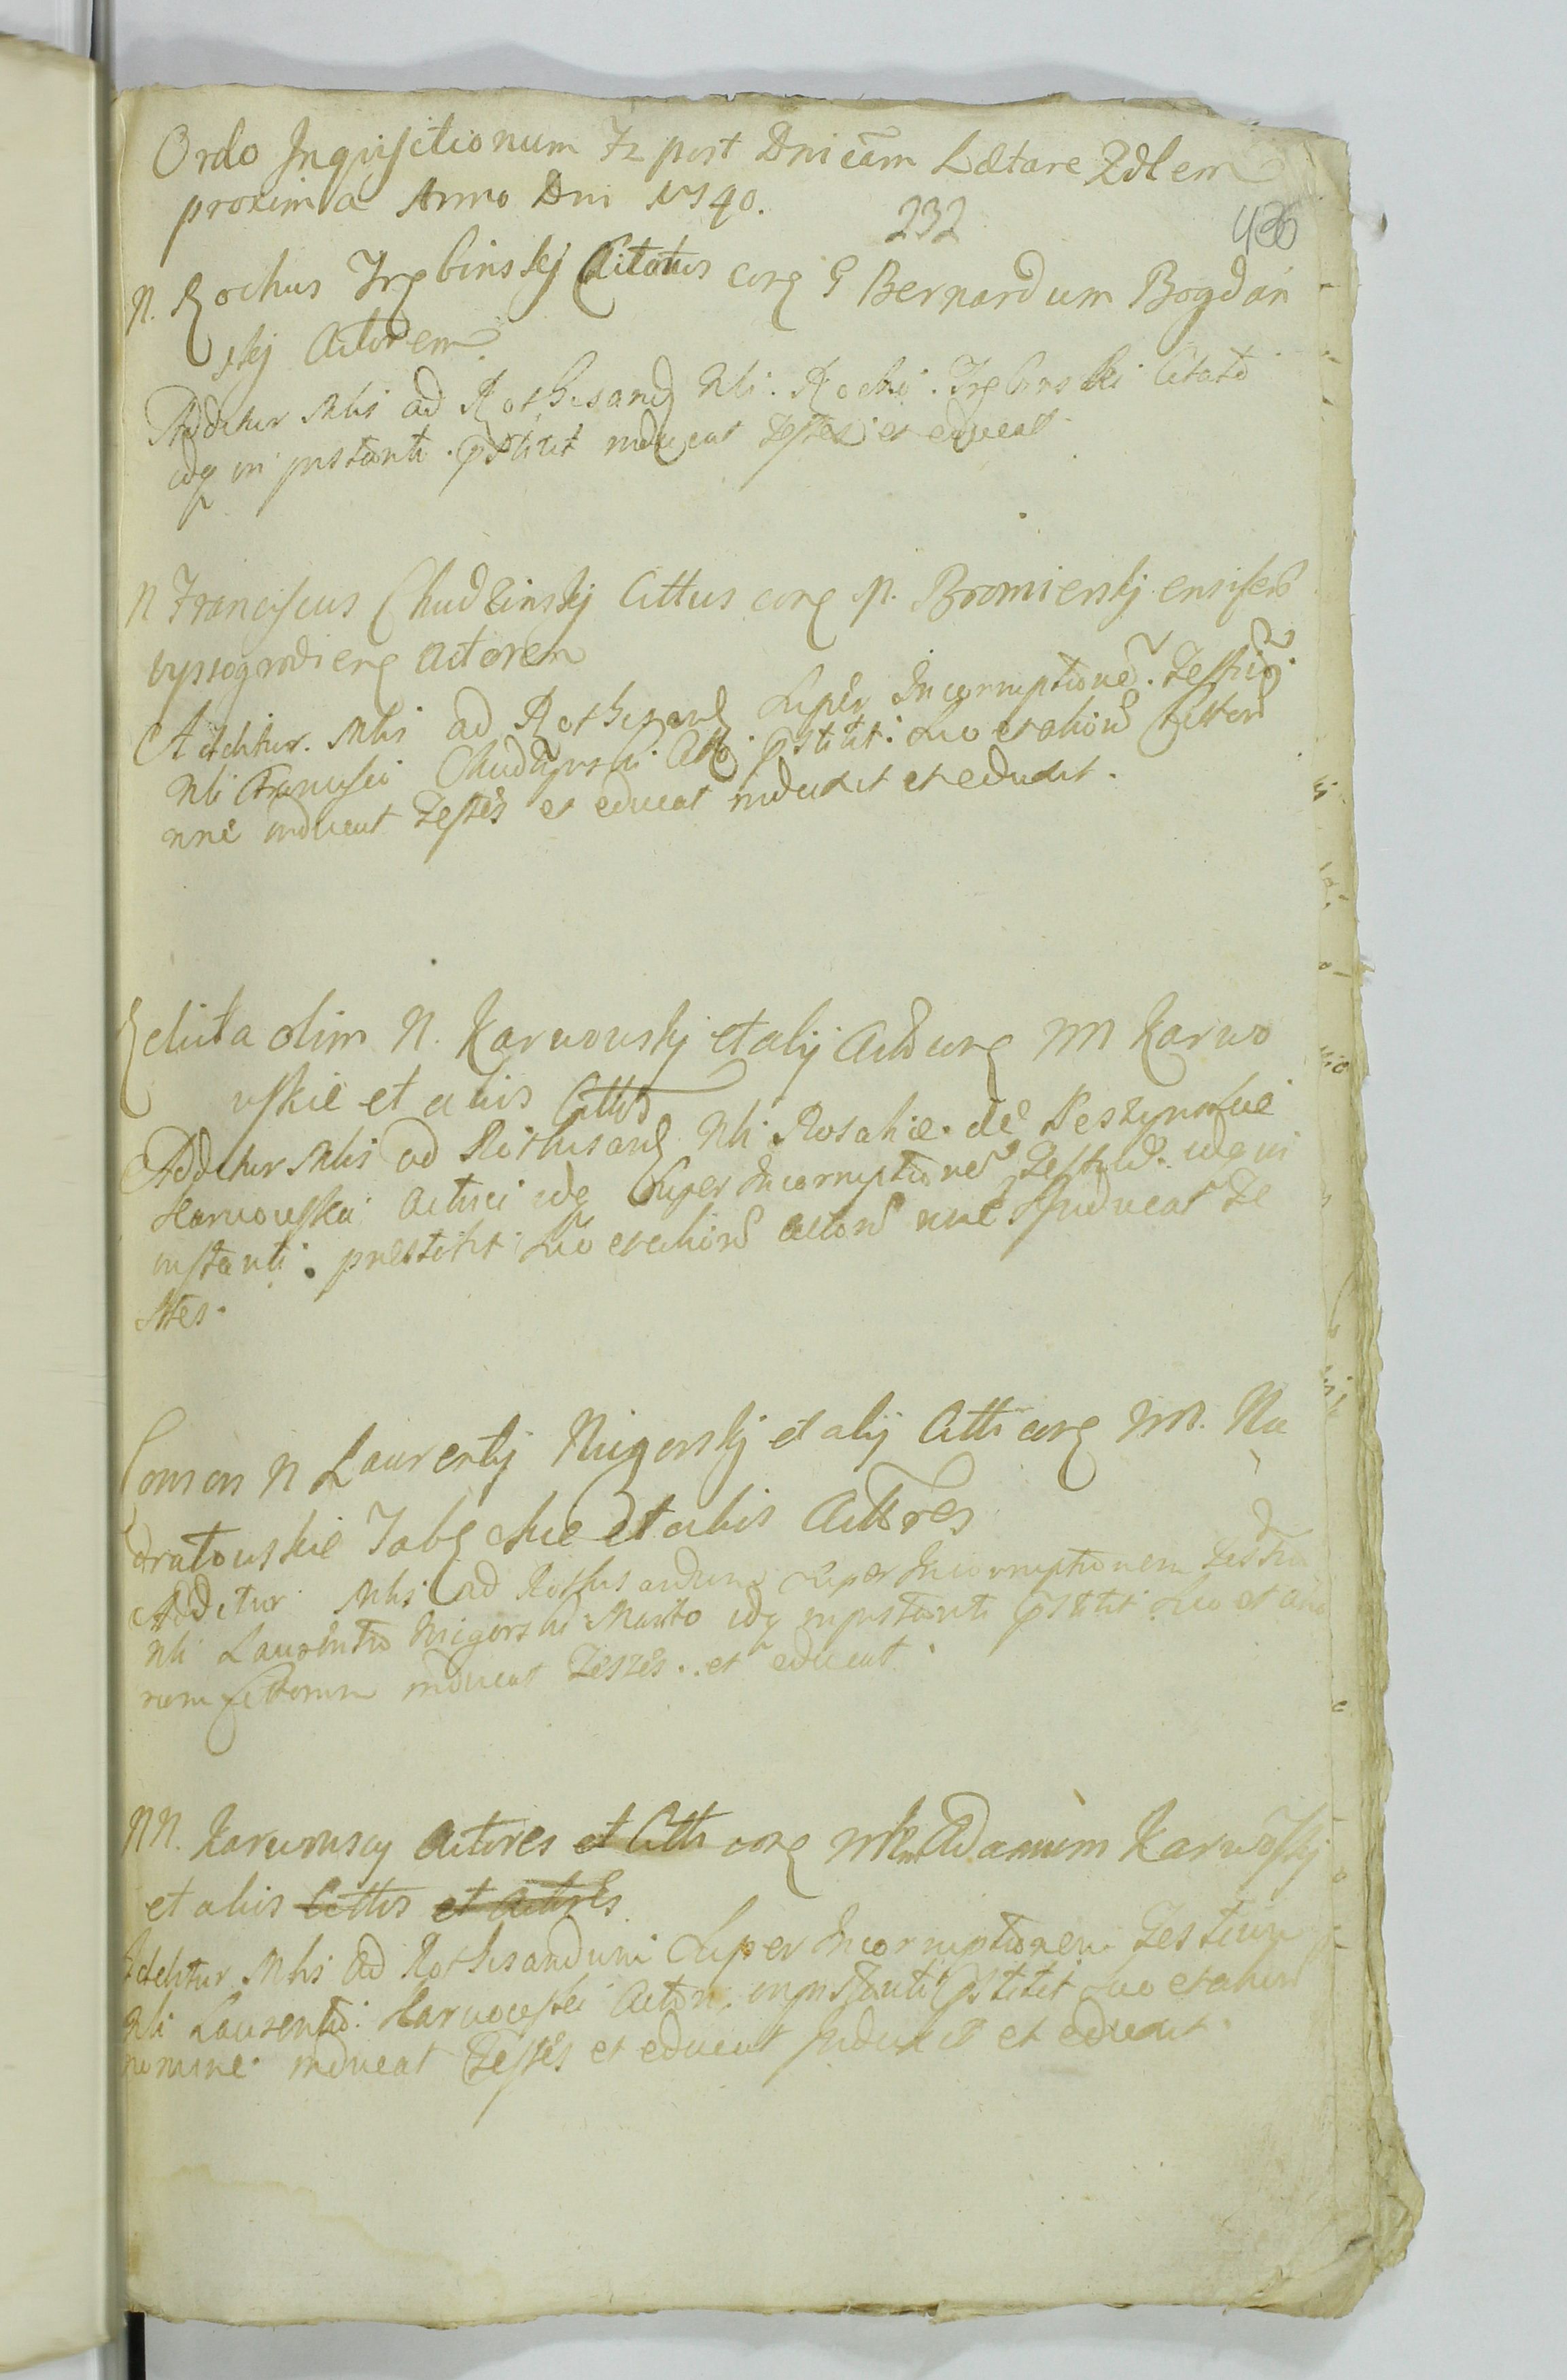 Ordo Inquisitionum Fz post Dnicam Lætare Qdlem
proxima Anno Dni 1740.
232
N. Rochus Trębinskj Citatus corą G Bernardum Bogdan
skj Actorem
Additur Mlis ad Rothisandą Nli. Rochi. Trębinski Citato
idq in instanti. pstitit inducat Testes et educat
N Franciscus Chudzinskj Cittus corą M. Bromierskj ensifero
vyssogrodiens Actorem
Additur. Mlis ad Rothisandą Super Incorruptione. Testiu
Nli Francisci Chudzynski Citto. pstitit. Suo et alior Cittor
nne inducat Testes et educat induxit et eduxit.
Relicta olim N. Karwowskj et alij Act corą M Karwo
wskie et aliis Cittos
Additur Mlis ad Rothisandą Nli Rosaliæ. de
Karwowska idq Super Incorruptione Testiu. idq in
instanti. prestitit Suo et alior actor nne Inducat Te
stes.
Consors N Laurentij Nigorskj et alij Citti corą M.
et aliis Acttores
Additur Mlis ad Rothisandum Super Incorruptionem Testiu
Nli Laurentio Nigorski Marito idq in instanti pstitit Suo et alio
rum Cittorum inducat Testes. et educat.
NN. Karwowscy Actores et Citti corą Adamum Karwoskj
et aliis Cittos et Actores
Additur Mlis ad Rothisandum Super Incorruptionem Testium
Nli Laurentio. Karwowski Actori. in instanti pstitit Suo et alior
nomine. inducat Testes et educat Induxit et eduxit.